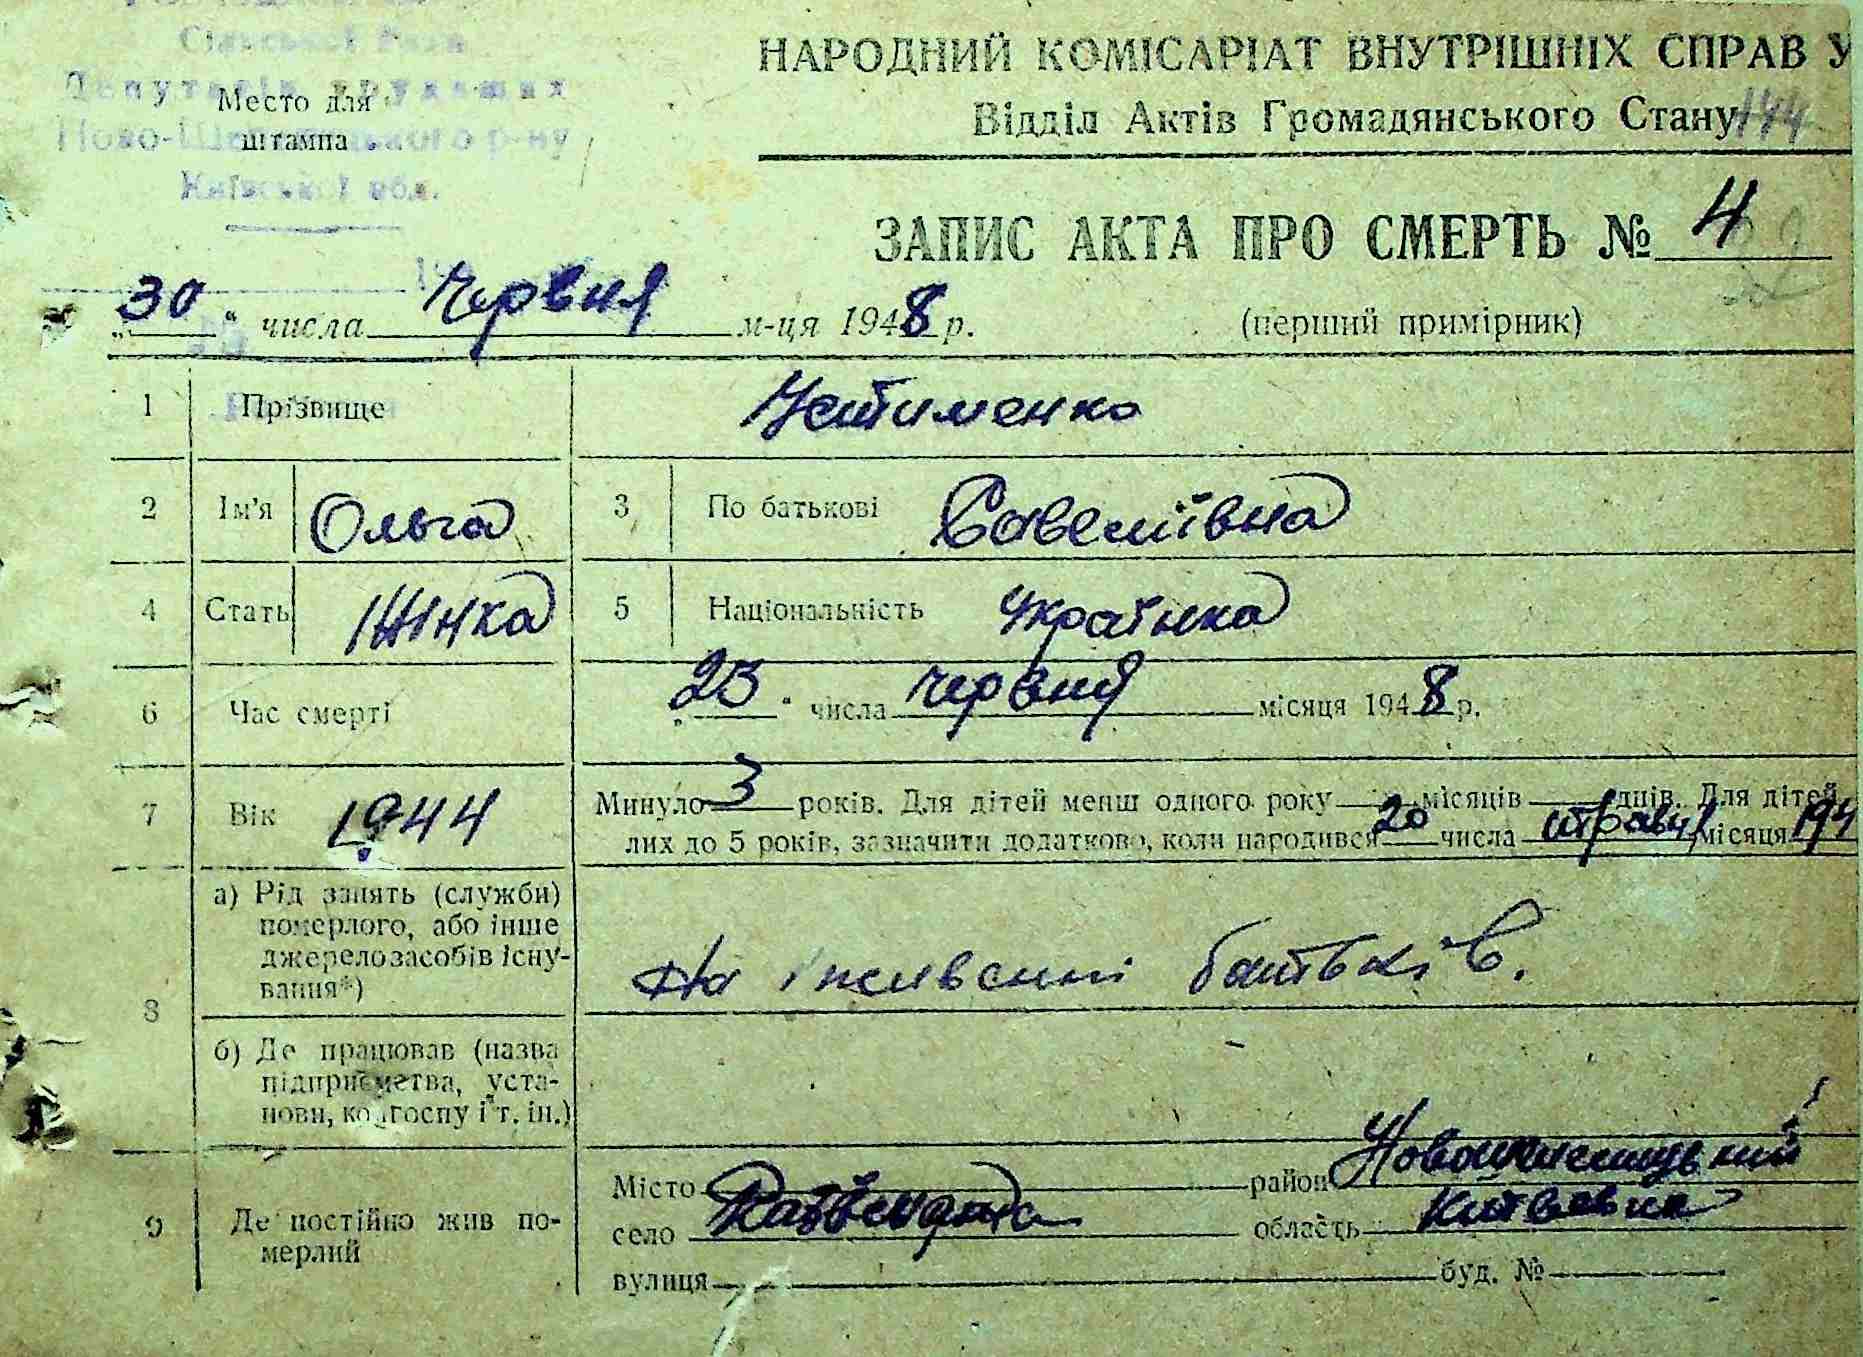 Сільської Ради
Депутатів трудящих
Место для
штампа
р-ну
Київської обл.
НАРОДНИЙ КОМІСАРІАТ ВНУТРІШНІХ СПРАВ У
Відділ Актів Громадянського Стану 144
ЗАПИС АКТА ПРО СМЕРТЬ № 4
„30" числа червня м-ця 1948 р. (перший примірник)
1 Прізвище Устименко
2 Ім'я Ольга 3 По батькові Савеліївна
4 Стать Жінка 5 Національність Українка
6 Час смерті „23" числа червня місяця 1948 р.
7 Вік 1944 Минуло 3 років. Для дітей менш одного року місяців днів. Для дітей
лих до 5 років, зазначити додатково, коли народився 20 числа місяця 194
8 а) Рід занять (служби)
померлого, або інше
джерело засобів існу-
вання*)
На іживенні батьків.
б) Де працював (назва
підприємства, уста-
нови, колгоспу і т. ін.)
9 Де постійно жив по-
мерлий
Місто район
село область Київська
вулиця буд. №